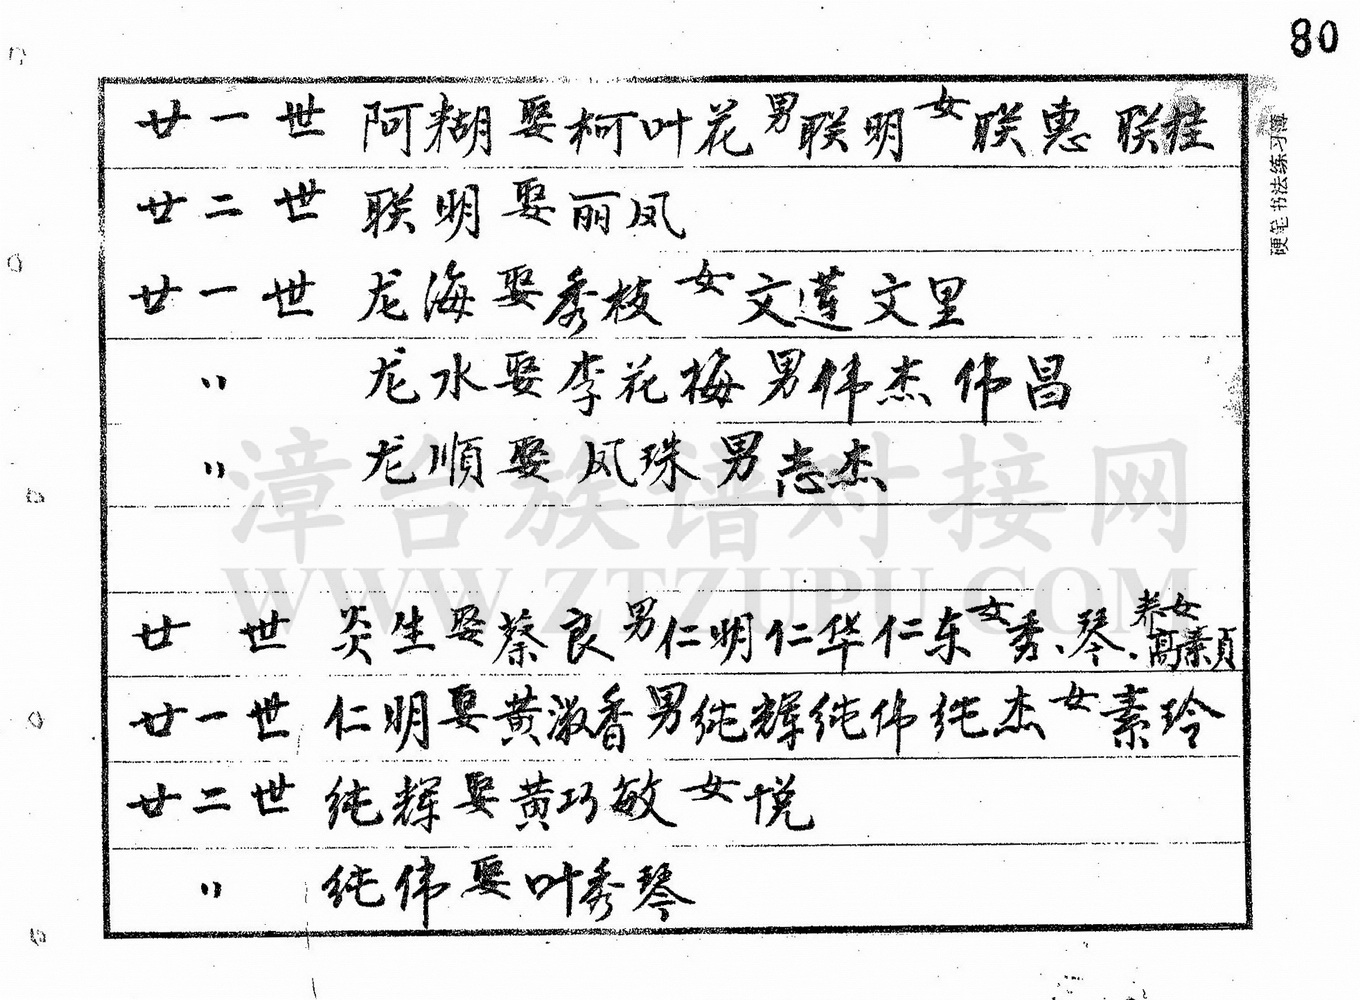 80
廿一世 阿糊娶柯叶花男联明女联惠 联桂
廿二世 联明娶丽凤
廿一世 龙海娶秀枝女文莲文里
〃 龙水娶李花梅男伟杰伟昌
〃 龙顺娶凤珠男志杰
廿 世 炎生娶蔡良男仁明仁华仁东女秀、琴、养女高素貞
廿一世 仁明娶黄淑香男纯辉纯伟纯杰女素玲
廿二世 纯辉娶黄巧敏女悦
〃 纯伟娶叶秀琴
硬笔书法练习薄
漳台族谱对接网
WWW.ZTZUPU.COM